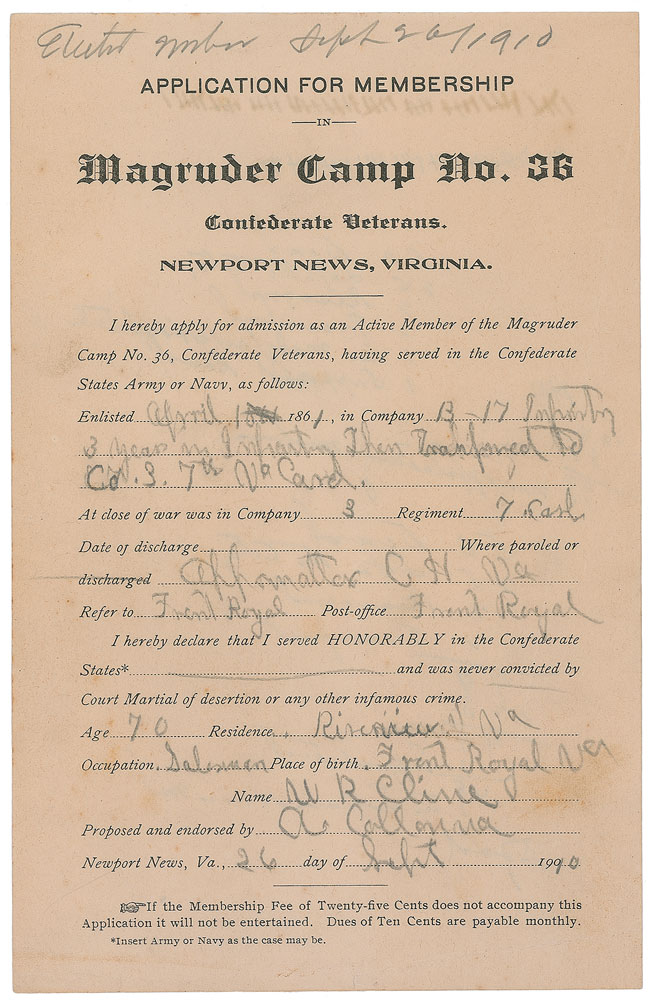 Elected member Sept 26/1910
APPLICATION FOR MEMBERSHIP
—IN—
Magruder Camp No. 36
Confederate Veterans.
NEWPORT NEWS, VIRGINIA.
I hereby apply for admission as an Active Member of the Magruder
Camp No. 36, Confederate Veterans, having served in the Confederate
States Army or Navy, as follows:
Enlisted April 1861, in Company B-17 Infantry
3 years in Infantry Then Transfered to
Co. 3. 7th Va Cavl.
At close of war was in Company 3 Regiment 7 Cavl
Date of discharge Where paroled or
discharged Appmattox C H Va
Refer to Frent Royal Post-office Frent Royal
I hereby declare that I served HONORABLY in the Confederate
States* and was never convicted by
Court Martial of desertion or any other infamous crime.
Age 70 Residence. Riverview Va
Occupation. Salesman Place of birth. Frent Royal Va
Name W R Cline
Proposed and endorsed by A. Collonna
Newport News, Va., 26 day of Sept 1910
☞If the Membership Fee of Twenty-five Cents does not accompany this
Application it will not be entertained. Dues of Ten Cents are payable monthly.
*Insert Army or Navy as the case may be.